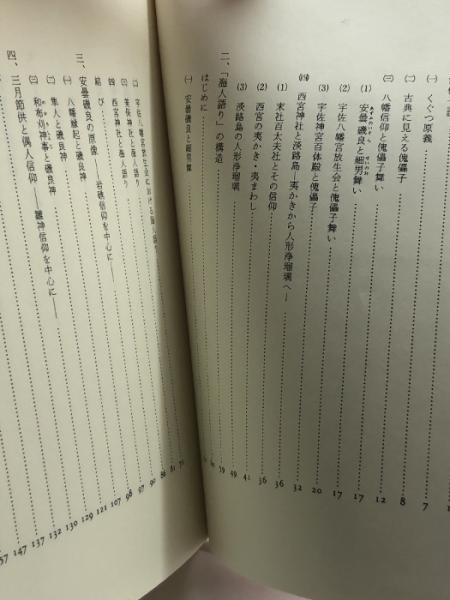 (1) くぐつ原義 7
(2) 古典に見える傀儡子 8
(三) 八幡信仰と傀儡子舞い 12
(1) 安曇磯良と細男舞い 17
(2) 宇佐八幡宮放生会と傀儡子舞い 17
(3) 宇佐神宮百体殿と傀儡子 20
(四) 西宮神社と淡路島―夷かきから人形浄瑠璃へ― 32
(1) 末社百太夫社とその信仰 36
(2) 西宮の夷かき・夷まわし 36
(3) 淡路島の人形浄瑠璃 41
二、「海人語り」の構造
はじめに
(一) 安曇磯良と細男舞
(二) 宇佐八幡宮放生会
(四) 西宮神社と海人語り
結び
三、安曇磯良の原像――岩礁信仰を中心に――
(一) 八幡縁起と磯良神
(二) 隼人と磯良神
(三) 和布刈神事と磯良神
四、三月節供と偶人信仰――雛神信仰を中心に――